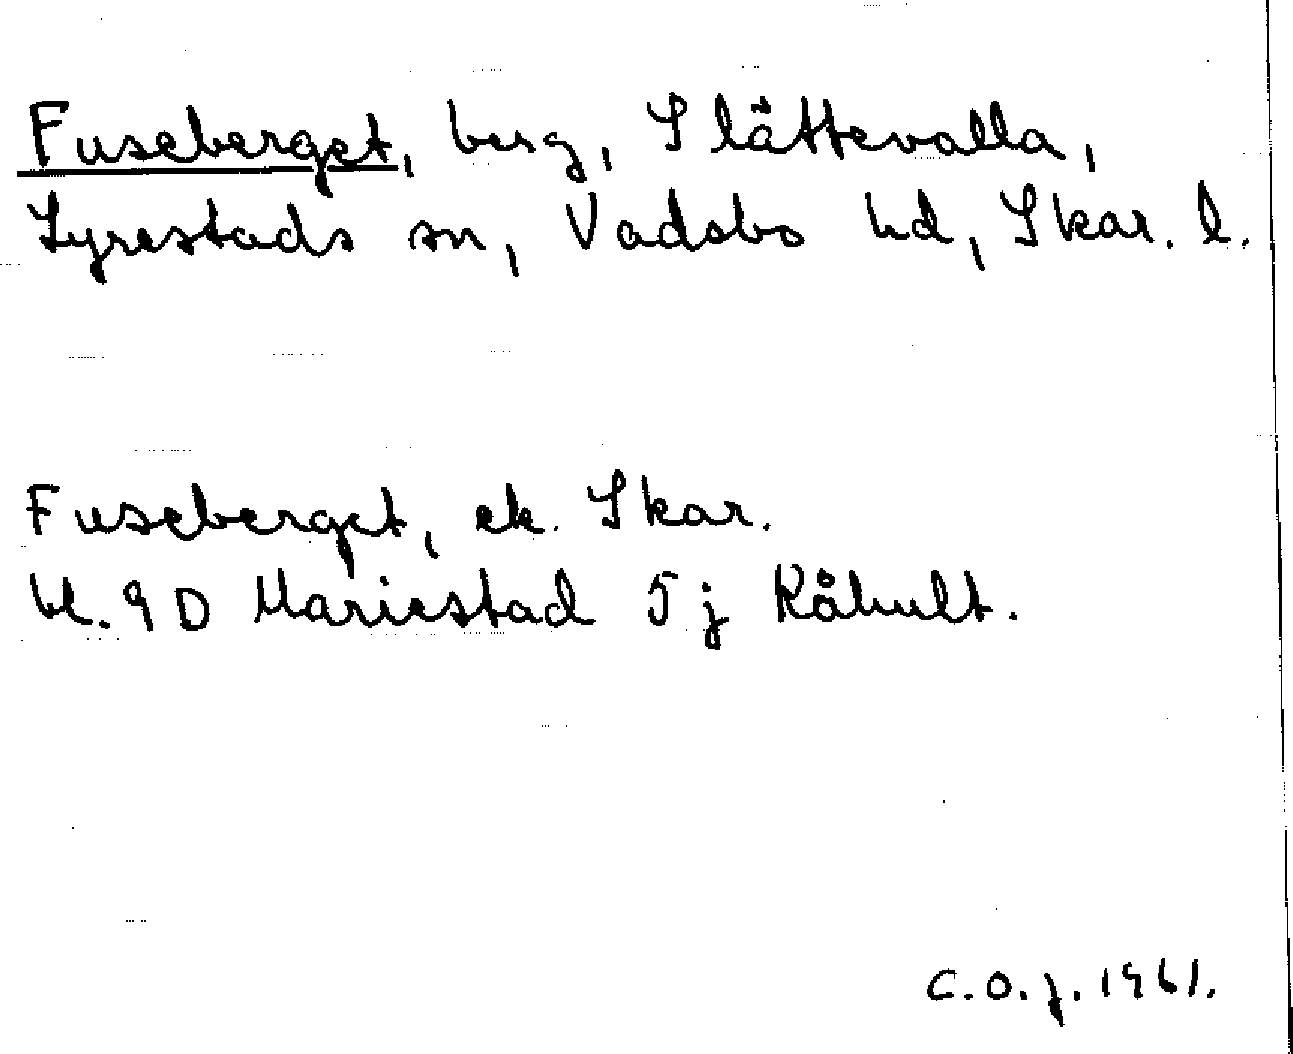 Fuseberget, berg, Slättevalla,
Lyrestads sn, Vadsbo hd, Skar. l.
Fuseberget, ek. Skar.
bl. 9 D Mariestad 5 j Råhult.
C.O.J. 1961.